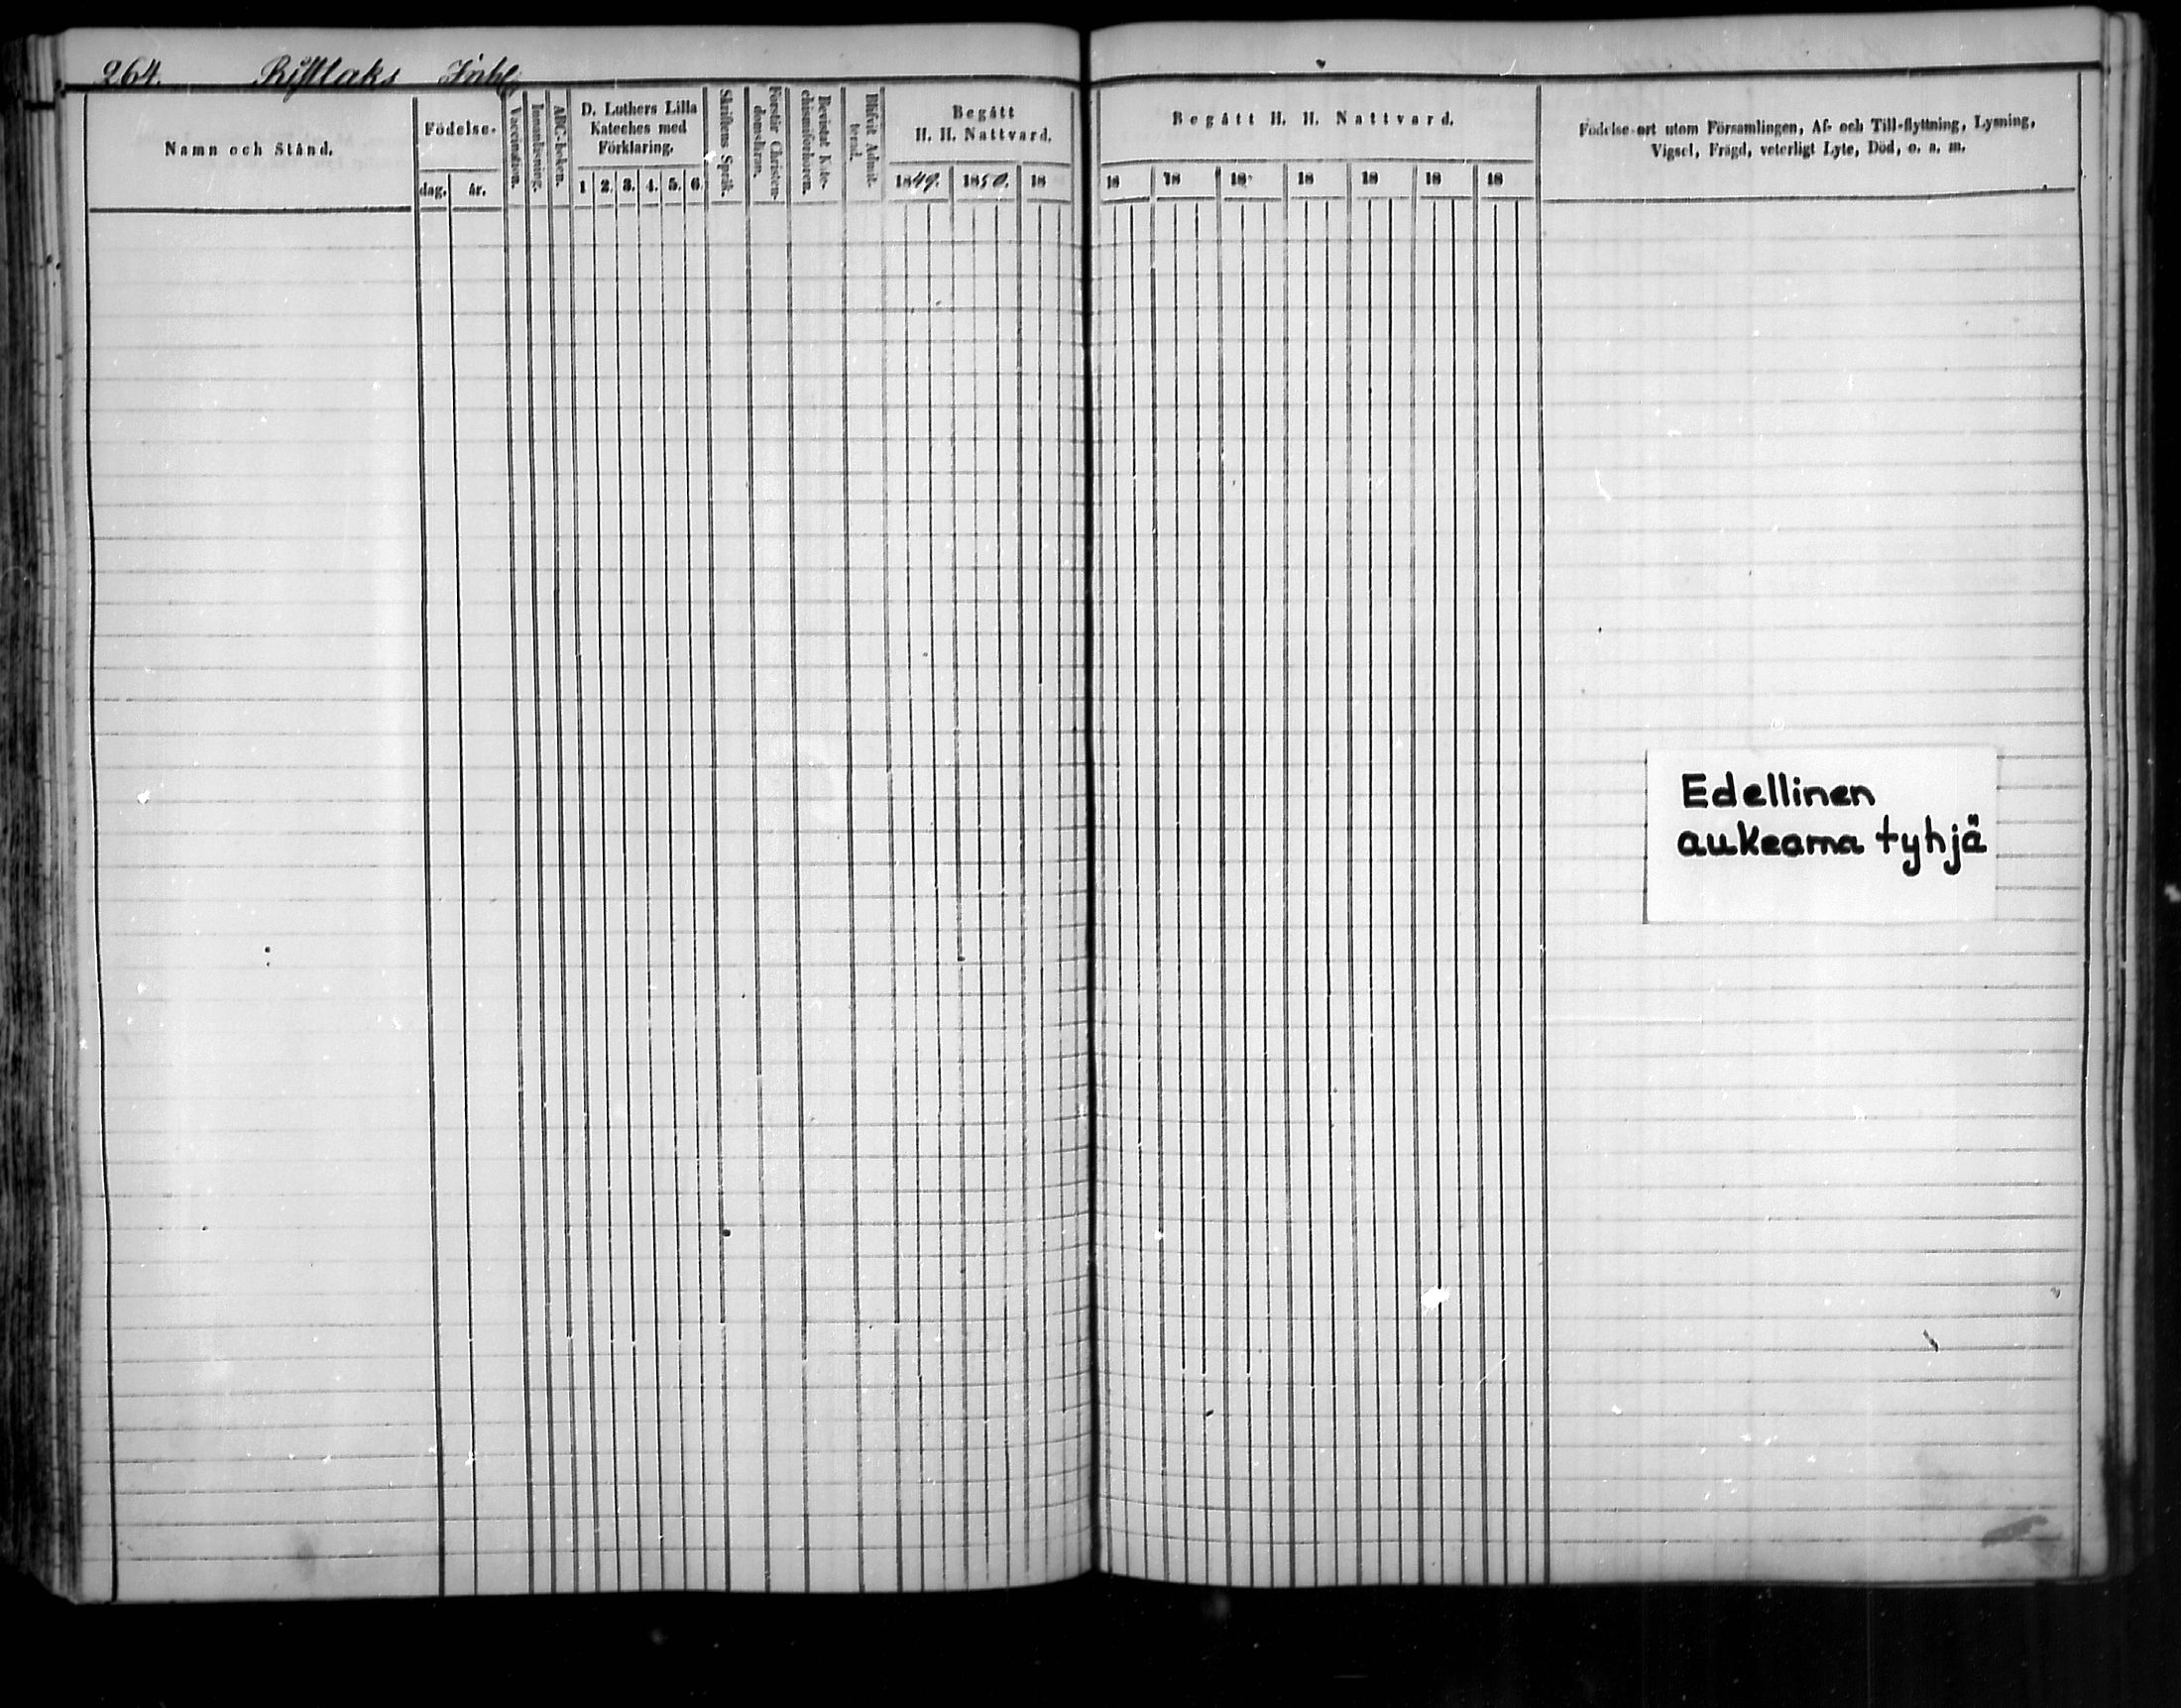 264.
Namn och Stånd.
Födelse-
dag. år.
Vaccination.
Innanläsning.
ABC-boken.
D. Luthers Lilla
Kateches med
Förklaring.
1 2. 3. 4. 5. 6.
Skriftens Språk.
Förstår Christen-
domsläran.
Bevistat Kate-
chismiförhören.
Blifvit Admit-
terad.
Begått
H. H. Nattvard.
1849. 1850. 18
Begått H. H. Nattvard.
18 18 18 18 18 18 18
Födelse-ort utom Församlingen, Af- och Till-flyttning, Lysning,
Vigsel, Frägd, veterligt Lyte, Död, o. s. m.
Edellinen
aukeama tyhjä